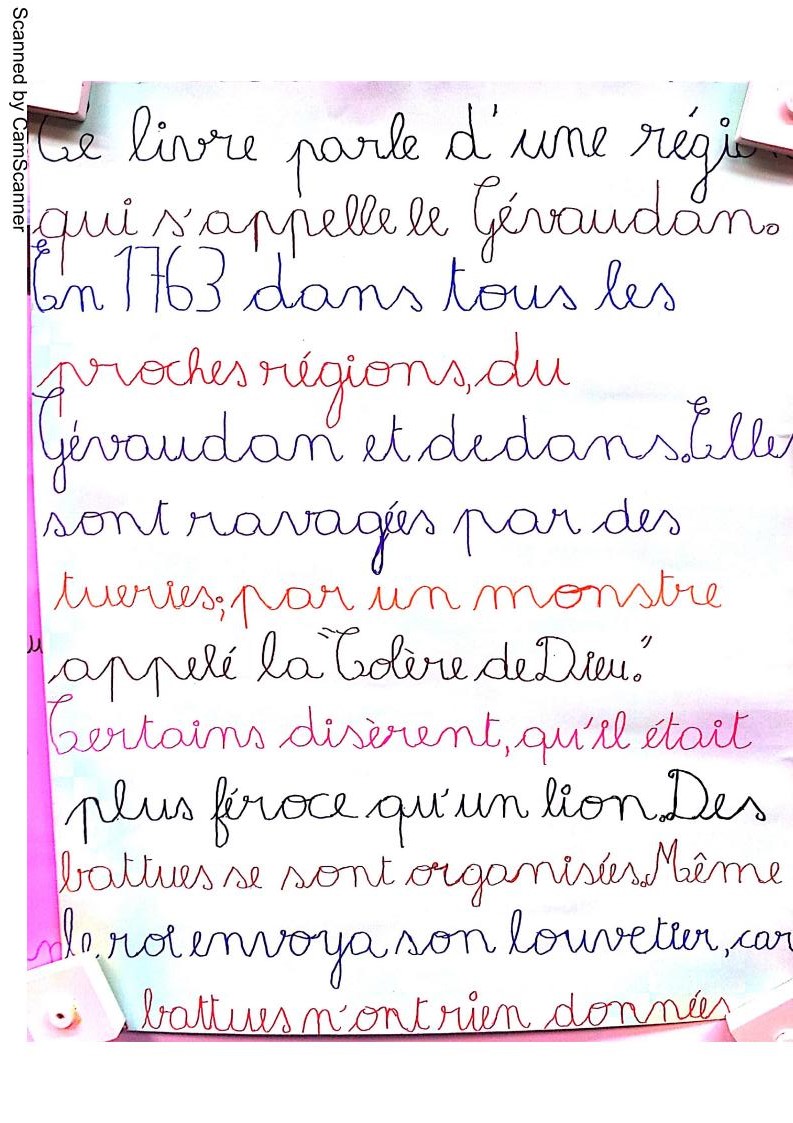 Scanned by CamScanner
Ce livre parle d'une régi
qui s'appelle le Gévaudan.
En 1763 dans tous les
proches régions, du
Gévaudan et dedans. Elles
sont ravagées par des
tueries; par un monstre
appelé la "Colère de Dieu."
Certains disèrent, qu'il était
plus féroce qu'un lion. Des
battues se sont organisées. Même
le roi envoya son louvetier, car
battues n'ont rien données